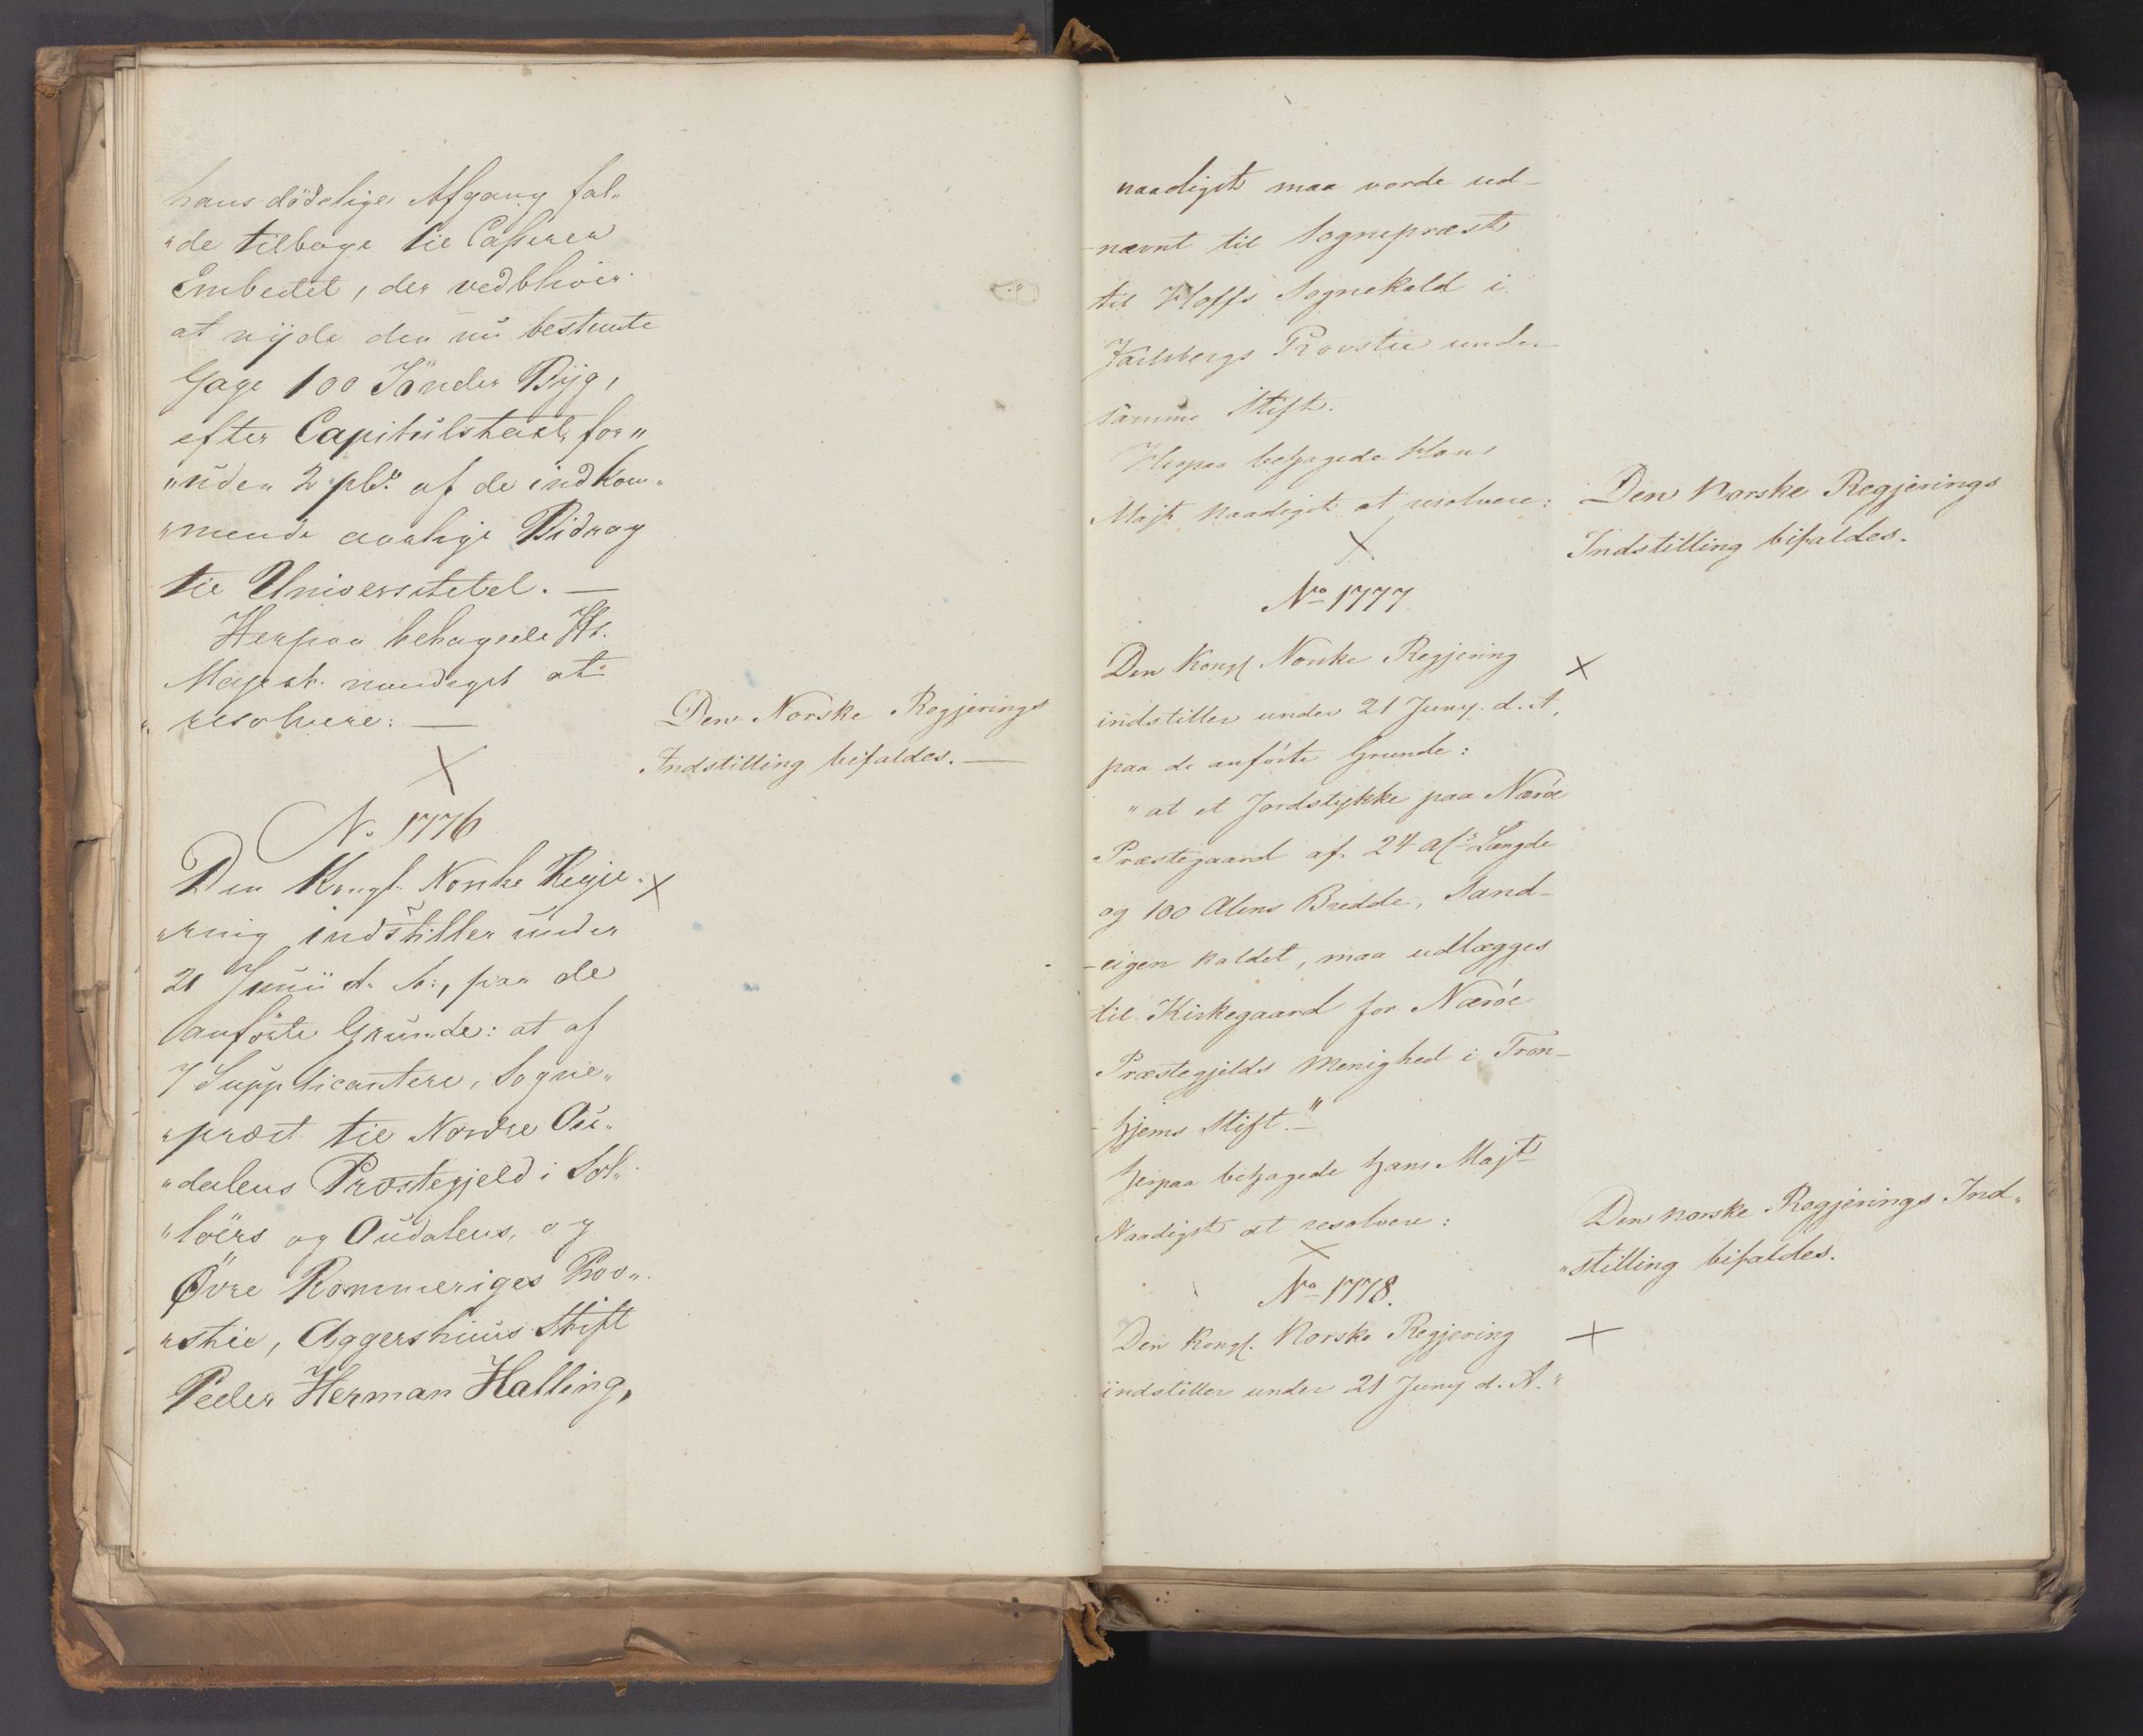 hans dödelige Afgang fal„
„de tilbage til Casserer
Embedet, der vedbliver
at nÿde den nu bestemte
Gage 100 Tönder Byg,
efter Capitülstaxt, for„
„üden 2 pCt. af de indkom„
„mende aarlige Bidrag
til Universitetet. —
Herpaa behagede Hs.
Majest. naadigst at
resolvere: —
Den Norske Regjerings
Indstilling bifaldes. —
No 1776
Den Kongl. Norske Regje„
„ring indstiller ünder
21 Junii d. A., paa de
anförte Gründe: at af
7 Supplicantere, Sogne„
„præst til Nordre Ou„
„dalens Præstegjeld i Sol„
„löers og Oüdalens, og
Øvre Rommeriges Prov„
„stie, Aggershuus Stift
Peder Herman Halling,
naadigst maa vorde ud-
-nævnt til Sognepræst
til Hoffs Sognekald i
Jarlsbergs Provstie under
samme Stift.
Herpaa behagede Hans
Majt naadigst at resolvere:
Den Norske Regjerings
Indstilling bifaldes.
No 1777
Den Kongl Norske Regjering
indstiller under 21 Juny d. A.
paa de anförte Grunde:
"at et Jordstykke paa Næröe
Præstegaard af 24 Al: Længde
og 100 Alens Bredde, Sand-
-eigen kaldet, maa udlægges
til Kirkegaard for Næröe
Præstegjelds Menighed i Tron-
-hjems Stift."
Herpaa behagede Hans Majt
Naadigst at resolvere:
Den Norske Regjerings Ind„
„stilling bifaldes.
No 1778.
Den Kongl. Norske Regjering
indstiller under 21 Juny d. A.